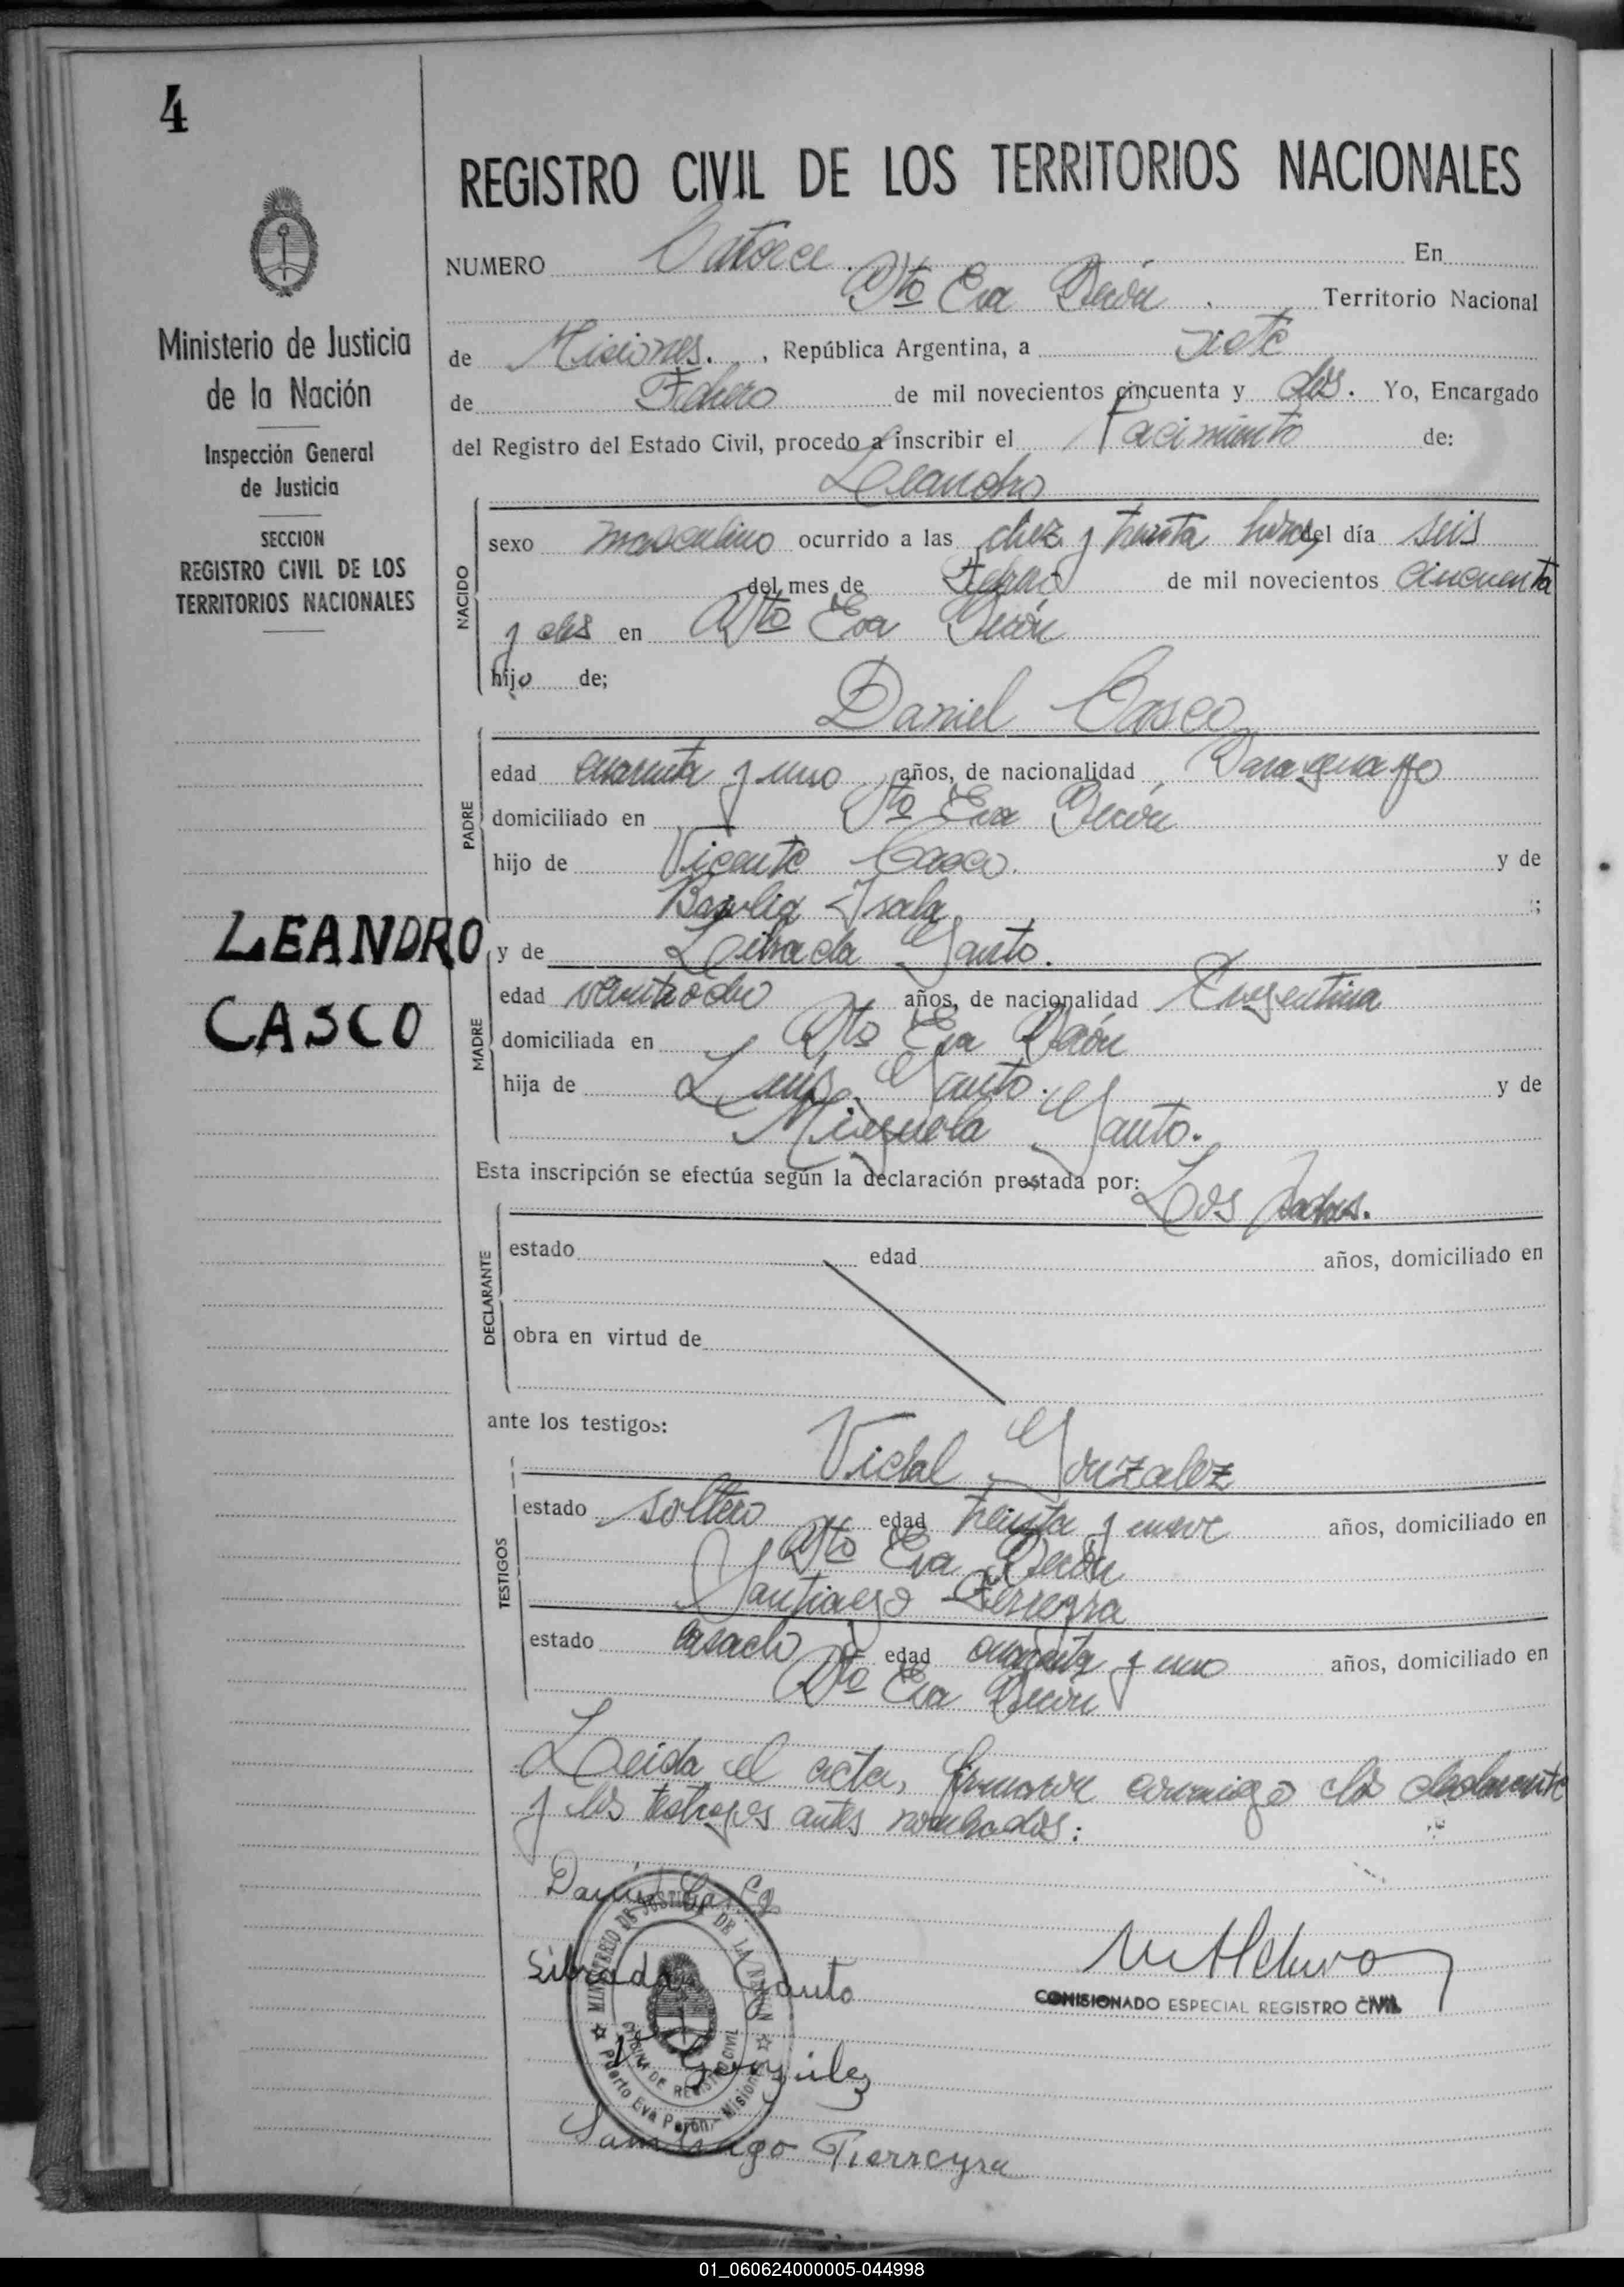 4
REGISTRO CIVIL DE LOS TERRITORIOS NACIONALES
Ministerio de Justicia
de la Nación
Inspección General
de Justicia
SECCION
REGISTRO CIVIL DE LOS
TERRITORIOS NACIONALES
LEANDRO
CASCO
NUMERO Catorce. En
Pto Eva Perón. Territorio Nacional
de Misiones. , República Argentina, a siete
de Febrero de mil novecientos cincuenta y dos. Yo, Encargado
del Registro del Estado Civil, procedo a inscribir el Nacimiento de:
Leandro
NACIDO
sexo masculino ocurrido a las diez y treinta horas del día seis
del mes de Febrero de mil novecientos cincuenta
y dos en Pto Eva Perón
hijo de;
Daniel Casco
PADRE
edad cuarenta y uno años, de nacionalidad Paraguayo
domiciliado en Pto Eva Perón
hijo de Vicente Casco. y de
Isala ;
y de Librada Gauto.
MADRE
edad veintiocho años, de nacionalidad Argentina
domiciliada en Pto Eva Perón
hija de Luis Gauto. y de
Miguela Gauto.
Esta inscripción se efectúa según la declaración prestada por:
Los padres.
DECLARANTE
estado edad años, domiciliado en
obra en virtud de
ante los testigos:
Vidal Gonzalez
TESTIGOS
estado soltero edad treinta y nueve años, domiciliado en
Pto Eva Perón
Santiago Ferreyra
estado casado edad cuarenta y uno años, domiciliado en
Pto Eva Perón
Leida el acta, firmaron conmigo los declarante
y los testigos antes nombrados:
Daniel Casco
Librada Gauto
COMISIONADO ESPECIAL REGISTRO CIVIL
V Gonzulez
Santiago Fierreyra
MINISTERIO DE JUSTICIA DE LA NACION
OFICINA DE REGISTRO CIVIL
Puerto Eva Perón - Misiones
01_060624000005-044998